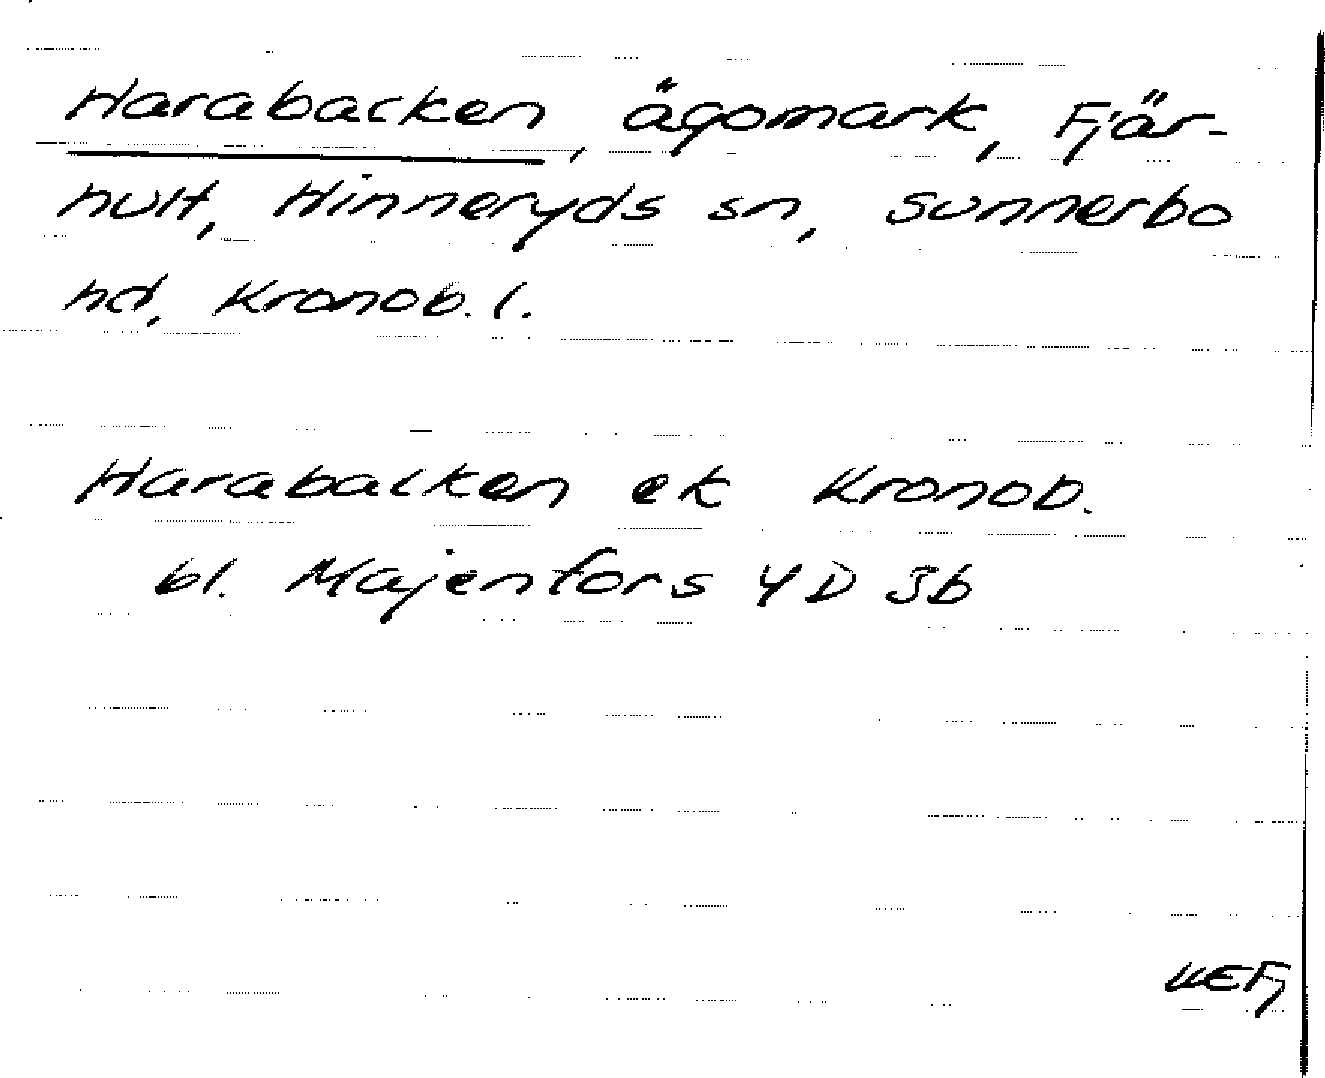 Harabacken, ägomark, Fjär-
hult, Hinneryds sn, Sunnerbo
hd, Kronob. l.
Harabacken ek Kronob.
bl. Majenfors 4D 3b